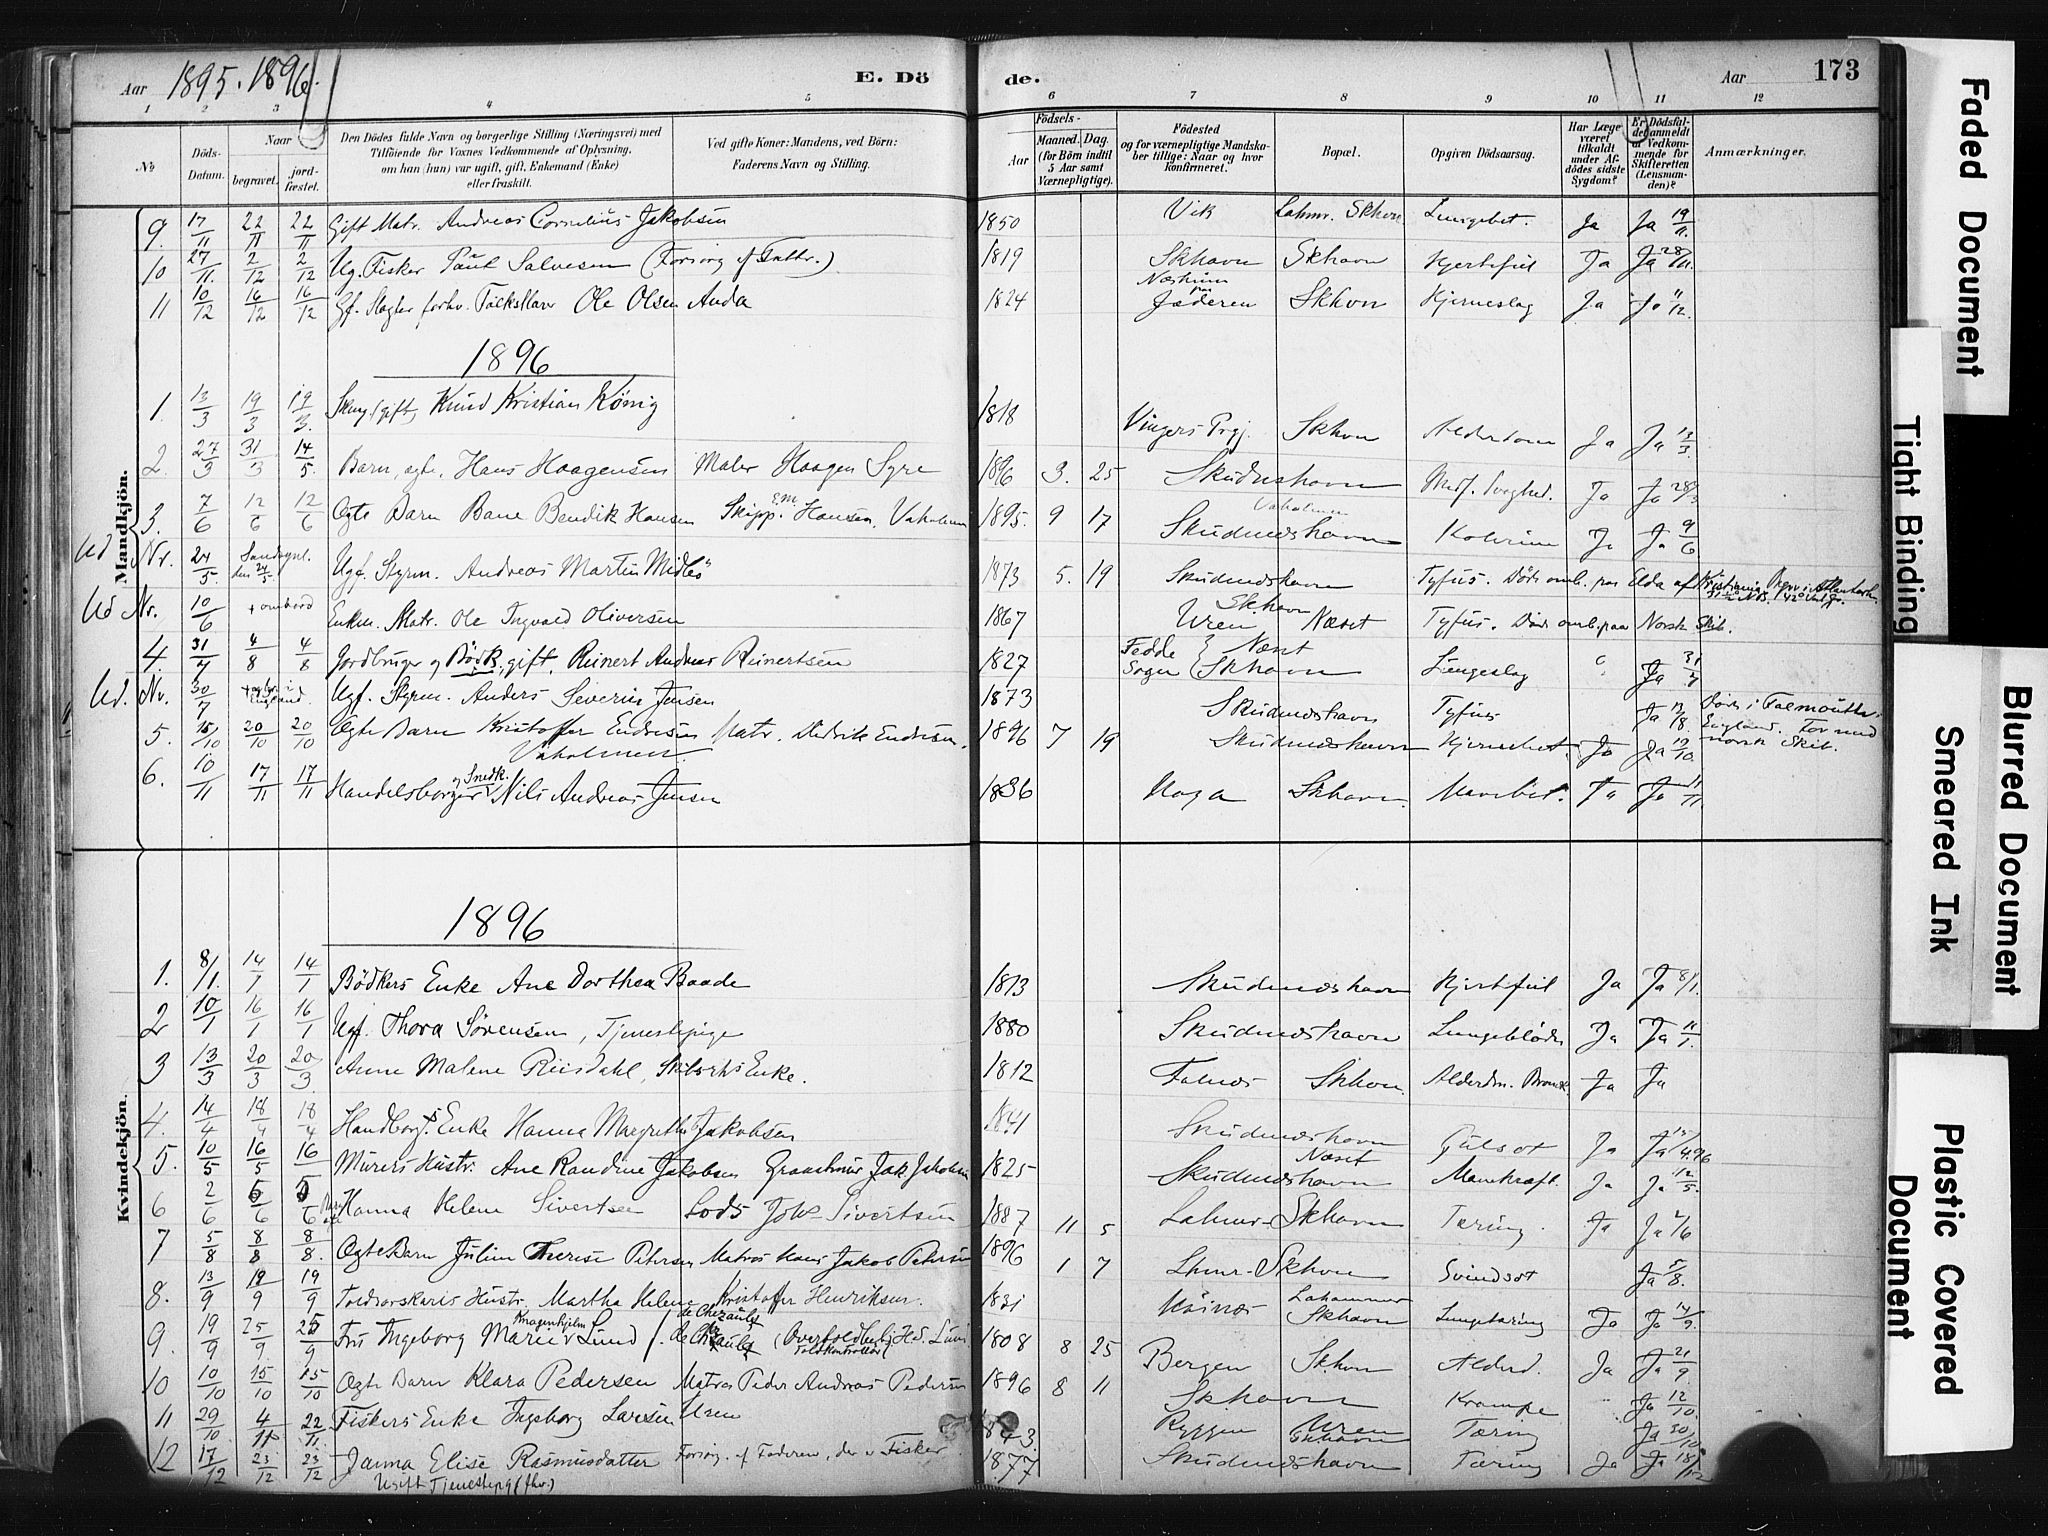 Aar 1895. 1896. E. Dö de. Aar 173
1 2 3 4 5 6 7 8 9 10 11 12
№ Döds-Datum. Naar begravet. jord-fæstet. Den Dödes fulde Navn og borgerlige Stilling (Næringsvei) med Tilföiende for Voxnes Vedkommende af Oplysning, om han (hun) var ugift, gift, Enkemand (Enke) eller fraskilt. Ved gifte Koner: Mandens, ved Börn: Faderens Navn og Stilling. Födsels- Aar Maaned. Dag. (for Börn indtil 5 Aar samt Værnepligtige). Födested og for værnepligtige Mandska-ber tillige: Naar og hvor konfirmeret. Bopæl. Opgiven Dödsaarsag. Har Læge været tilkaldt under Af-dödes sidste Sygdom? Er Dödsfal-det anmeldt Vedkom-mende for Skifteretten (Lensman-den)? Anmærkninger.
Mandkjön.
9. 17/11 22/11 22/11 Gift Matr. Andreas Cornelius Jakobsen 1850 Vik Lahmr. Skhavn. Lungebet. Ja Ja 19/11.
10 27/11. 2/12 2/12 Ug. Fisker Paul Salvesen (Forsörg. af Fatth.) 1819 Skhavn Skhavn Hjertefeil Ja Ja 28/11.
11 10/12 16/12 16/12 Gf. Slagter forhv. Ole Olsen Anda 1824 Jæderen Skhvn Hjerneslag Ja Ja 11/12.
1896
1. 13/3 19/3 19/3. gift, Knud Kristian König 1818 Vingers Prgj. Skhvn Alderdom Ja Ja 13/3.
2. 27/3 31/3 14/5 Barn, ægte, Hans Haagensen Maler Haagen Syre 1896 3. 25 Skudneshavn Medf. Svaghed. Ja Ja 28/3
3. 7/6 12/6 12/6 Ægte Barn Bane Bendik Hansen Skipp. Em. Hansen, Vaholmen 1895. 9 17 Vaholmen Skudneshavn Kolerine Ja Ja 9/6
Ud Nr. 24/5. den 24/5. Ugf. Styrm. Andreas Martin Midbö 1873 5. 19 Skudneshavn Tyfus. Döde omb. paa Elda af Kristiania
Ud Nr. 10/6 + ombord Enkm. Matr. Ole Ingvald Oliversen 1867 Skhavn Uren Næset Tyfus. Döde omb. paa Norsk Skib.
4. 31/7 4/8 4/8 Jordbruger og Bödk. gift. Reinert Andreas Reinertsen 1827 Fedde Sogn Næset Skhavn Lungeslag Ja 31/7
Ud. Nr. 30/7 England. Ugf. Styrm. Anders Severin Jensen 1873 Skudneshavn Tyfus Ja Döde i Falmouth i England. For med norsk Skib.
5. 15/10 20/10 20/10 Ægte Barn Kristoffer Endresen Matr. Didrik Endresen, Vaholmen. 1896 7 19 Skudneshavn Hjernebet. Ja Ja 19/10.
6. 10/11 17/11 17/11 Handelsborger og Snedk. Nils Andreas Jensen 1836 Haga Skhavn. Mavebet. Ja Ja 11/11.
1896
Kvindekjön.
1. 8/1. 14/1 14/1 Bödkers Enke Ane Dorthea Baade 1813 Skudneshavn Hjertefeil Ja Ja 8/1.
2 10/1 16/1 16/1 Ugf. Thora Sörensen, Tjenestepige 1880 Skudneshavn Lungeblödn. Ja Ja 11/1.
3 13/3 20/3 20/3. Anne Malene Riisdahl, Enke. 1812 Falnæs Skhavn. Alderdm. Ja Ja
4. 14/4 18/4 18/4 Handborgs. Enke Hanna Magrethe Jakobsen 1841 Skudneshavn Gulsot Ja Ja 15/4 96
5. 10/5 16/5 16 Murers Hustr. Ane Randine Jakobsen Graasteinmur Jak Jakobsen 1825 Næset Skudneshavn Mavekræft. Ja Ja 12/5.
6 2/6 6/6 6/6 Hanna Helene Sivertsen Lods Joh. Sivertsen 1887 11 5 Lahmr- Skhavn Tæring. Ja Ja 4/6
7 5/8 8/8 8/8. Ægte Barn Julia Therese Petersen Matros Hans Jakob Petersen 1896 1 7 Lhmr- Skhvn Svindsot Ja 5/8.
8. 13/9 19/9 19/9 Hustr. Martha Helene Kristoffer Henriksen. 1831 Lahammer Skhavn Lungetæring Ja Ja 14/9.
9. 19/9 25/9. 25/9 Fru Ingeborg Marie Lund 1808 8 25 Bergen Skhvn Alderd. Ja Ja 21/9
10 10/10 15/10 15/10 Ægte Barn Klara Pedersen Matros Peder Andreas Pedersen 1896 8 11 Skhavn Krampe Ja 12/10.
11 29/10. 4/11 22/11. Fiskers Enke Ingeborg Larsen Uren Ryggen Uren Skhavn Tæring Ja 30/10
12 17/12 23/12 23/12 Janna Elise Rasmusdatter Forsörg. af Faderen, der er Fisker. 1877 Skudneshavn Tæring Ja Ja 18/12
Ugift Tjenestepg (fhv.)
Faded Document
Tight Binding
Blurred Document
Smeared Ink
Plastic Covered
Document